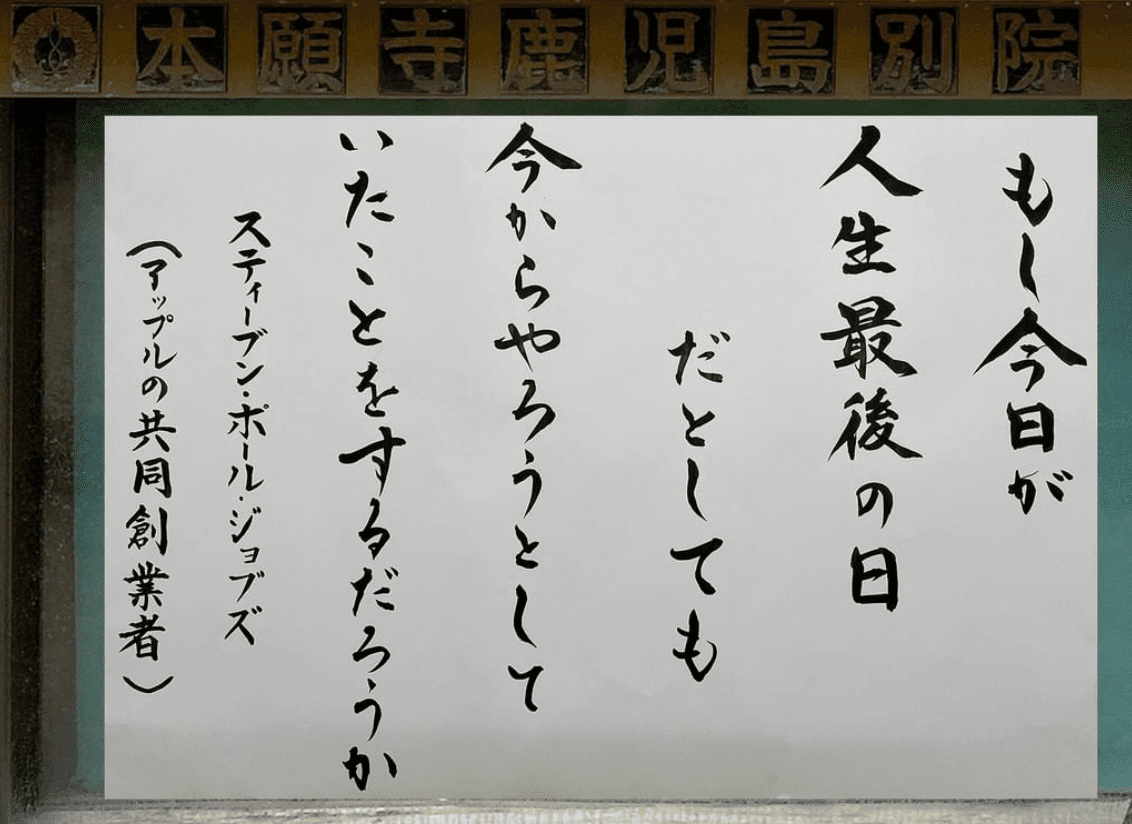 本願寺鹿児島別院
もし今日が
人生最後の日
だとしても
今からやろうとして
いたことをするだろうか
スティーブン・ポール・ジョブズ
(アップルの共同創業者)